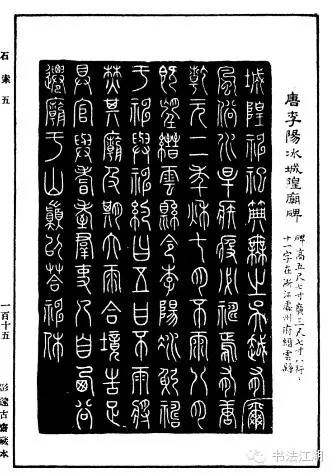 唐李陽冰城隍廟碑
碑高五尺七寸廣三尺七寸八行行
十一字在浙江處州府縉雲縣
城隍神祀典無之吳越有爾
風俗水旱疾疫必禱焉有唐
乾元二年秋七月不雨八月
既望縉雲縣令李陽冰躬禱
于神與神約曰五日不雨將
焚其廟及期大雨合境告足
具官與耆耋羣吏乃自西谷
遷廟于山巔以答神休
石索五
一百十五
遠古齋藏本
书法江湖